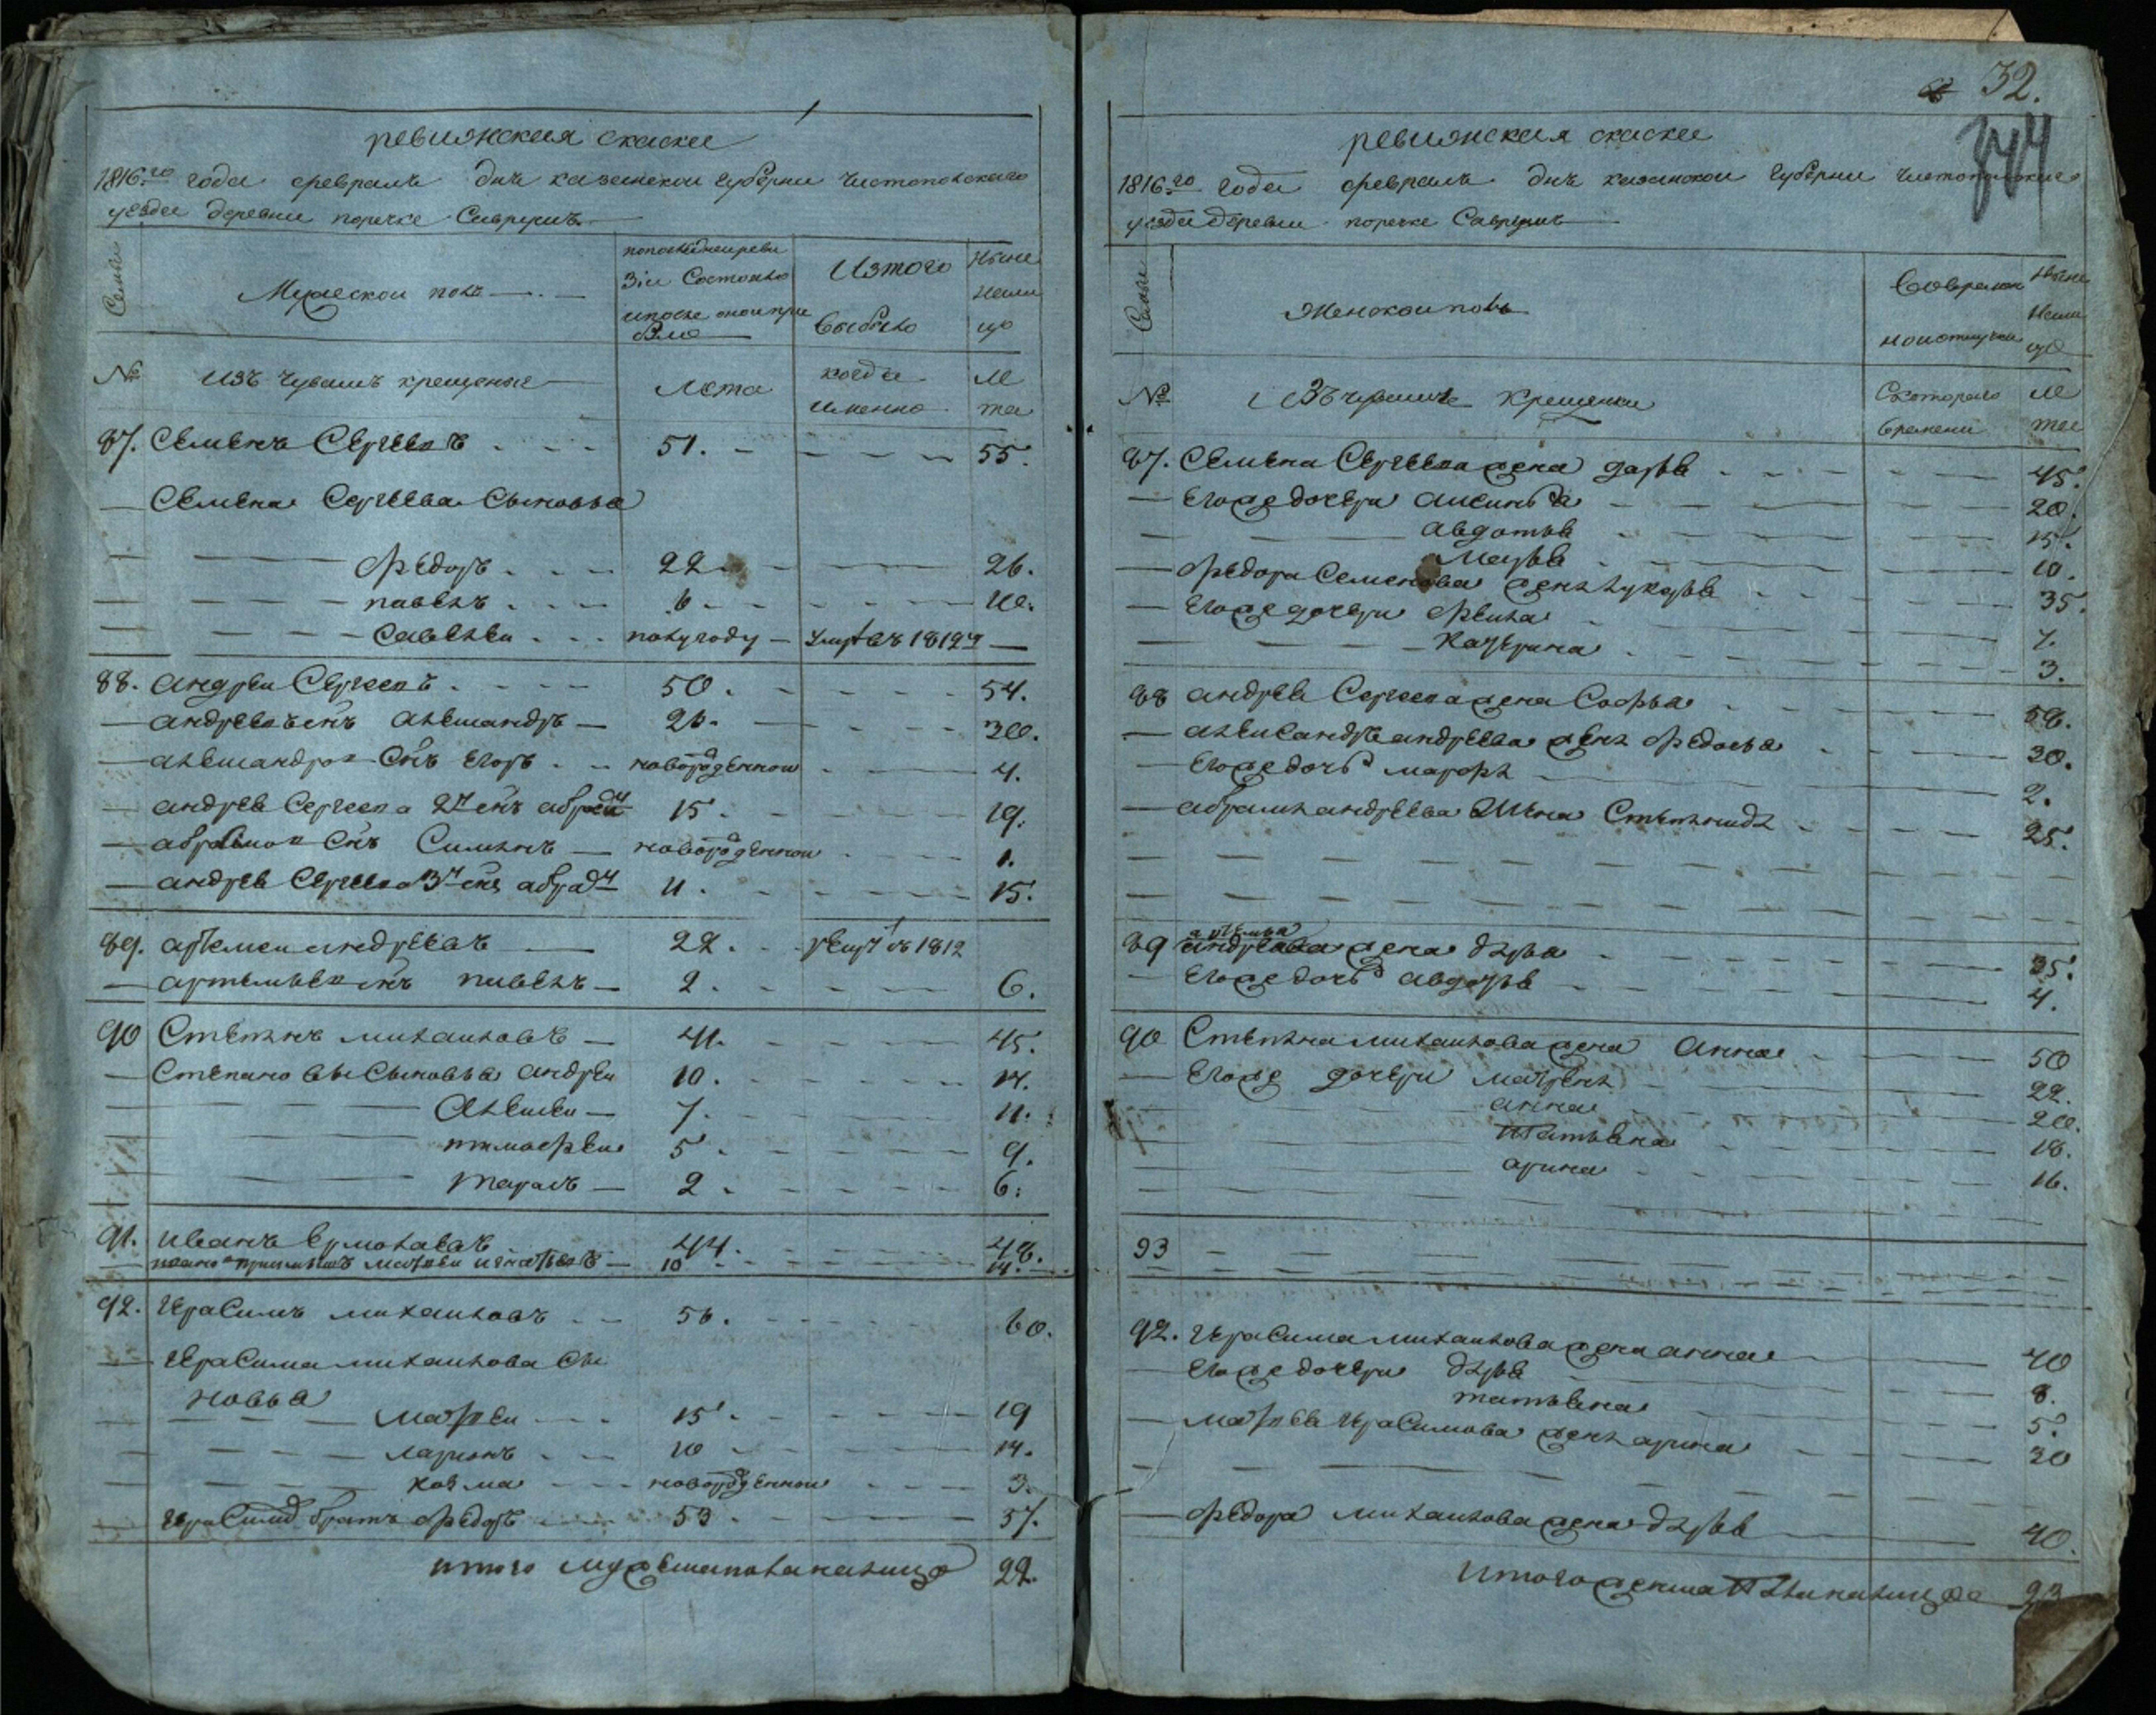 ревижская скаски
1816го года февраль дня казанской губерни чистопольскаго
уезда деревни поречке Саврушъ
Семьи
Мужеской полъ
попоследнеиреви
зіи Состояло
ипосле онои при
было
Изтого
выбыло
Ныне
нали
цо
№
изъ чувашъ крещеные
Лета
когда
имянно
Ле
та
87. Семенъ Сергеевъ 51. 55.
Семена Сергеева Сыновья
федоръ 22 26.
павелъ 6 10.
Савелеи полугоду умре въ 1812м
88. андреи Сергеевъ 50. 54.
андреевъ снъ александръ 26. 30.
александров снъ егоръ новорожденнои 4.
андрея Сергеева 2й снъ абрам 15. 19.
абрамов снъ Симионъ новорожденнои 1.
андрея Сергеева 3й снъ 11. 15.
89. артемеи андреевъ 22. въ 1812
артемьев снъ павелъ 2. 6.
90 Степанъ михаиловъ 41. 45.
Степановы Сыновья андреи 10. 14.
Алексеи 7. 11.
тимофеи 5. 9.
тарасъ 2. 6.
91. иванъ ермолаевъ 44. 48.
матвеи игнатьевъ 10 14.
92. Герасимъ михаиловъ 56. 60.
Герасима михаилова Сы
новья
матвеи 15. 19
ларионъ 10 14.
козма новорожденнои 3.
Герасимов братъ федоръ 53. 57.
итого мужескаполаналицо 22.
32.
344
ревижская скаски
1816го года февраль дня казанскои губерни чистопольскаго
уезда деревни поречке Саврушъ
Семьи
Женскои полъ
Вовремян
ноиотлучки
Ныне
Нали
цо
№
Изъ чувашъ Крещенки
Скотораго
времени
Ле
та
87. Семена Сергеева жена дарья 45.
Егоже дочери аксинья 20.
авдотья 15.
марья 10.
федора Семенова жена лукерья 35.
Егоже дочери 7.
Катерина 3.
88 андрея Сергеева жена Софья 58.
александра андреева жена федосья 30.
Егоже дочь марфа 2.
абрама андреева жена Степанида 25.
артемья
89 андреева жена дарья 35.
Егоже дочь авдотья 4.
90 Степана михаилова жена Анна 50
Егоже дочери матрена 22.
анна 20.
татьяна 18.
арина 16.
93
92. Герасима михаилова жена анна 40
Егоже дочери дарья 8.
татьяна 5.
матвея Герасимова жена арина 20
федора михаилова жена дарья 40.
Итого женска пола налицо 23